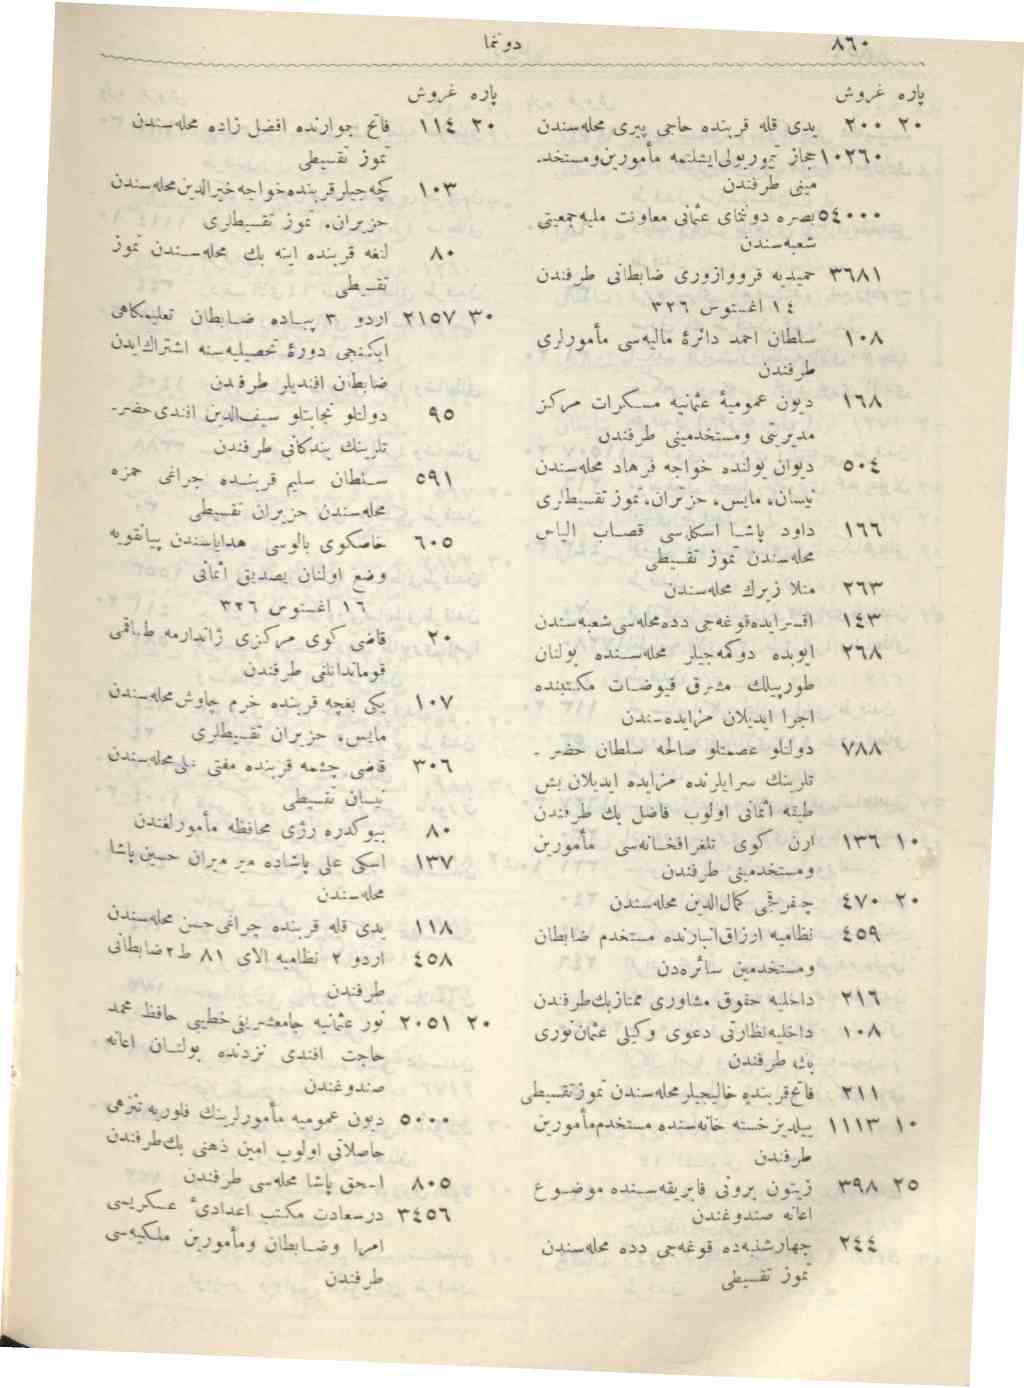 ٨٦٠
دونما
پاره غروش
٢٠ ٢٠٠ يدی قله قربنده حاجی پيری محله‌سندن
١٠٢٦٠ حجاز تيموريولی ايشلنمه مأمورين‌ومستخد-
مينی طرفندن
٥٤٠٠٠ بصره دونمای عثمانی معاونت مليه‌جمعيتی
شعبه‌سندن
٣٦٨١ حميديه قرووازوری ضابطانی طرفندن
١٤ اغستوس ٣٢٦
١٠٨ سلطان احمد دائرهٔ ماليه‌سی مأمورلری
طرفندن
١٦٨ ديون عموميهٔ عثمانيه مسكرات مركز
مديريتی ومستخدمينی طرفندن
٥٠٤ ديوان يولنده خواجه فرهاد محله‌سندن
نيسان، مايس، حزيران، تموز تقسيطلری
١٦٦ داود پاشا اسكله‌سی قصاب الياس
محله‌سندن تموز تقسيطی
٢٦٣ منلا زيرك محله‌سندن
١٤٣ اقسرايده‌قوغه‌جی دده‌محله‌سی‌شعبه‌سندن
٢٦٨ ايوبده دوكمه‌جيلر محله‌سنده بولنان
طورپيلك مشرق فيوضات مكتبنده
اجرا ايديلان مزايده‌سندن
٧٨٨ دولتلو عصمتلو صالحه سلطان حضر -
تلرينك سرايلرنده مزايده ايديلان بش
طبقه اثمانی اولوب فاضل بك طرفندن
١٠ ١٣٦ ارن كوی تلغرافخانه‌سی مأمورين
ومستخدمينی طرفندن
٢٠ ٤٧٠ جفرقجی كمال‌الدين محله‌سندن
٤٥٩ نظاميه ارزاق‌انبارنده مستخدم ضابطان
ومستخدمين سائره‌دن
٢١٦ داخليه حقوق مشاوری ممتازبك‌طرفندن
١٠٨ داخليه‌نظارتی دعوی وكيلی عثمان‌نوری
بك طرفندن
٢١١ فاتح‌قربنده خاليجيلرمحله‌سندن تموزتقسيطی
١٠ ١١١٣ ييلديزخسته خانه‌سنده مستخدم‌مأمورين
طرفندن
٢٥ ٣٩٨ زيتون برونی فابريقه‌سنده موضوع
اعانه صندوغندن
٢٤٤ چهارشنبه‌ده قوغه‌جی دده محله‌سندن
تموز تقسيطی
پاره غروش
٢٠ ١١٤ فاتح جوارنده افضل زاده محله‌سندن
تموز تقسيطی
١٠٣ كچه‌جيلرقربنده‌خواجه‌خيرالدين‌محله‌سندن
حزيران، تموز تقسيطلری
٨٠ لنغه قربنده اينه بك محله‌سندن تموز
تقسيطی
٣٠ ٢١٥٧ اردو ٣ پياده ضابطان تعليمكاهی
ايكنجی دورهٔ تحصيليه‌سنه اشتراك‌ايدن
ضابطان افنديلر طرفندن
٩٥ دولتلو نجابتلو سيف‌الدين افندی‌حضر-
تلرينك بندكانی طرفندن
٥٩١ سلطان سليم قربنده چراغی حمزه
محله‌سندن حزيران تقسيطی
٦٠٥ خاصكوی بالوسی هداياسندن پيانقويه
وضع اولنان يصديق اثمانی
١٦ اغستوس ٣٢٦
٢٠ قاضی كوی مركزی ژاندارمه طاقمی
قوماندانلغی طرفندن
١٠٧ يكی بغچه قربنده خرم چاوش‌محله‌سندن
مايس، حزيران تقسيطلری
٣٠٦ قاضی چشمه قربنده مفتی علی‌محله‌سندن
نيسان تقسيطی
٨٠ بيوكدره رژی محافظه مأمورلغندن
١٣٧ اسكی علی پاشاده مير ميران حسين‌پاشا
محله‌سندن
١١٨ يدی قله قربنده چراغی‌حسن محله‌سندن
٤٥٨ اردو ٢ نظاميه الای ٨١ ط٢ضابطانی
طرفندن
٢٠ ٢٠٥١ نور عثمانيه جامعشريفی‌خطيبی حافظ محمد
حاجت افندی نزدنده بولنان اعانه
صندوغندن
٥٠٠٠ ديون عموميه مأمورلرينك فلوريه تنزهی
حاصلاتی اولوب امين ذهنی بك‌طرفندن
٨٠٥ اسحق پاشا محله‌سی طرفندن
٣٤٥٦ درسعادت مكتب اعدادیٔ عسكريسی
امرا وضابطان ومأمورين ملكيه‌سی
طرفندن